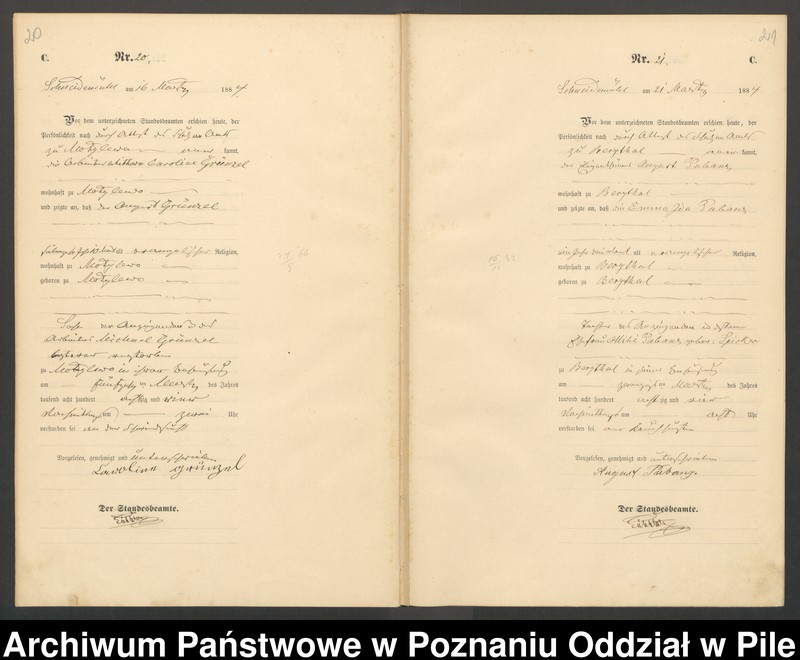 20
C.
Nr. 20.
Schneidemühl am 16 März 1884
Vor dem unterzeichneten Standesbeamten erschien heute, der
Persönlichkeit nach durch Attest des Schulzen Amts
zu Motylewo kannt,
die Arbeiterwittwe Caroline Grünzel
wohnhaft zu Motylewo
und zeigte an, daß der August Grünzel
alt evangelischer Religion,
wohnhaft zu Motylewo
geboren zu Motylewo
Sohn der Anzeigenden und des
Arbeiters Michael Grünzel
letzterer verstorben
zu Motylewo in ihrer Behausung
am fünfzehnten März des Jahres
tausend acht hundert achtzig und vier
Nachmittags um zwei Uhr
verstorben sei an der Schwindsucht
Vorgelesen, genehmigt und unterschrieben
Caroline Grünzel
Der Standesbeamte.
21
Nr. 21
C.
Schneidemühl am 21 März 1884
Vor dem unterzeichneten Standesbeamten erschien heute, der
Persönlichkeit nach durch Attest des Schulzen Amts
zu Bergthal kannt,
der Eigenthümer August Pabanz
wohnhaft zu Bergthal
und zeigte an, daß die Emma Ida Pabanz
alt evangelischer Religion,
wohnhaft zu Bergthal
geboren zu Bergthal
Tochter des Anzeigenden und dessen
Ehefrau Pabanz geborne
zu Bergthal in seiner Behausung
am zwanzigsten März des Jahres
tausend acht hundert achtzig und vier
Nachmittags um acht Uhr
verstorben sei am Keuchhusten
Vorgelesen, genehmigt und unterschrieben
August Pabanz
Der Standesbeamte.
Archiwum Państwowe w Poznaniu Oddział w Pile